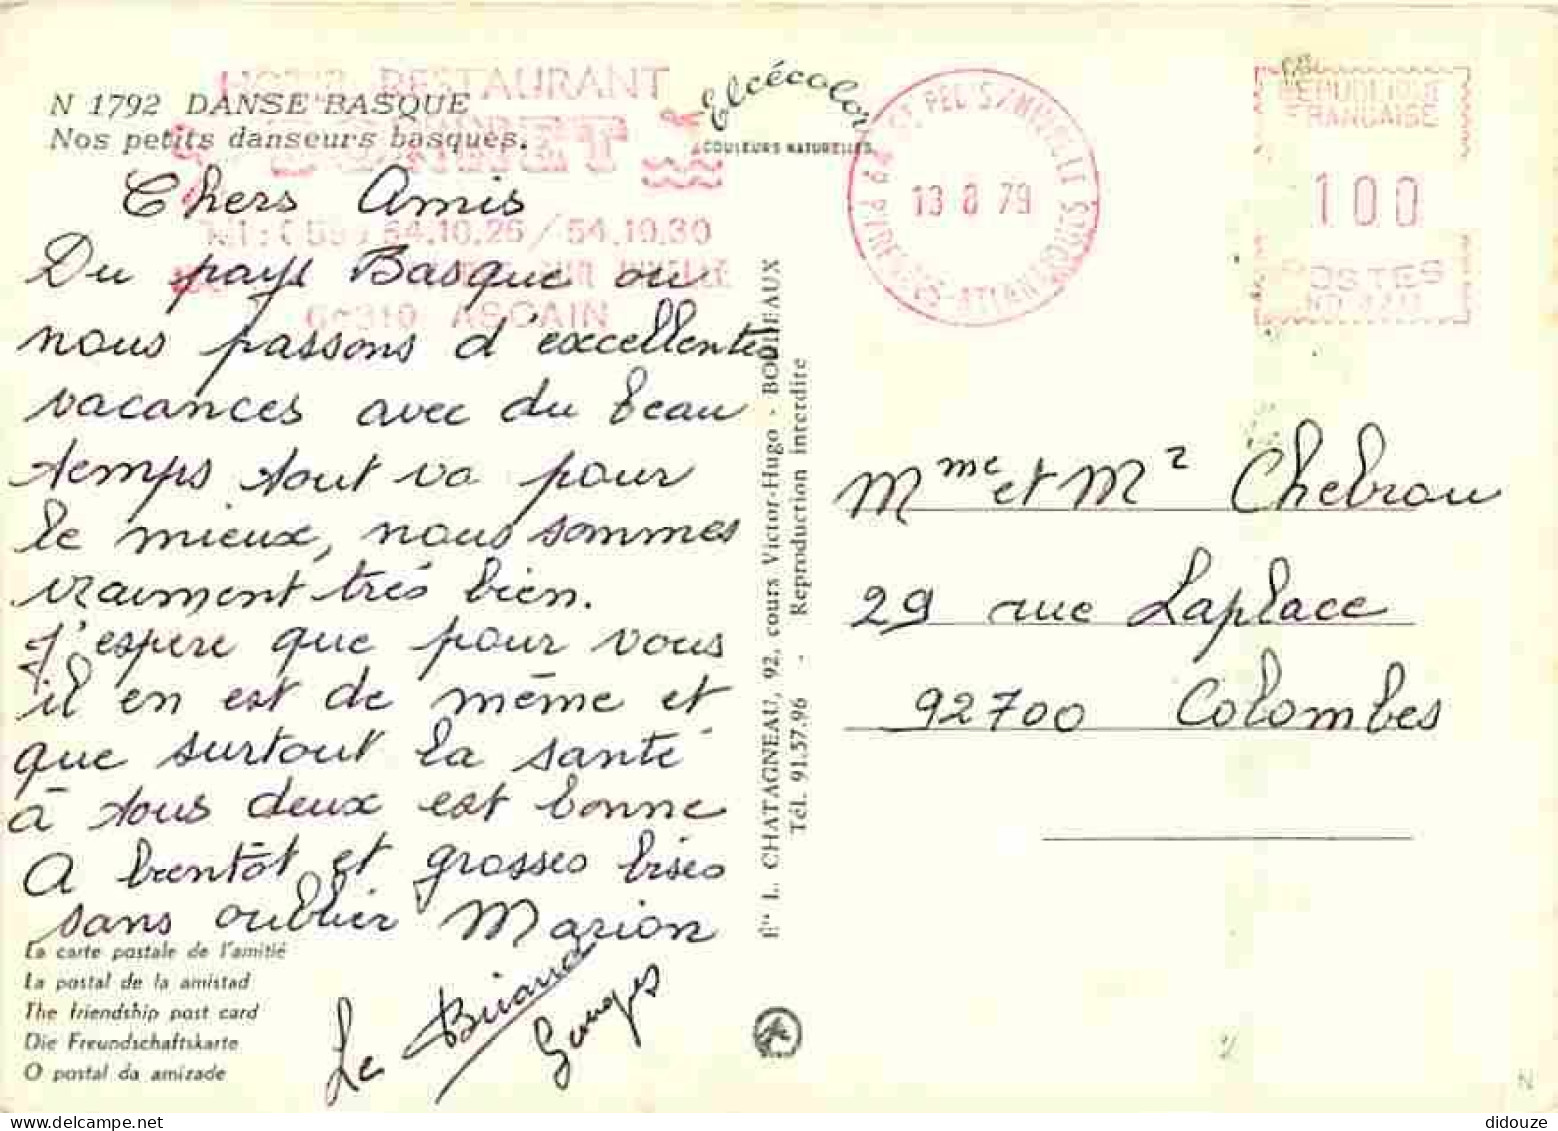 N 1792 DANSE BASQUE
Nos petits danseurs basques.
HOTEL RESTAURANT
54.10.26 / 54.10.30
ASCAIN
Elcécolor
COULEURS NATURELLES
64 ST PEE S/NIVELLE
PYRENEES-ATLANTIQUES
13 8 79
REPUBLIQUE
FRANCAISE
100
POSTES
Chers Amis
Du pays Basque ou
nous passons d'excellentes
vacances avec du beau
temps tout va pour
le mieux, nous sommes
vraiment très bien.
J'espere que pour vous
il en est de même et
que surtout la santé
à tous deux est bonne
A bientôt et grosses bises
sans oublier Marion
Le
Georges
La carte postale de l'amitié
La postal de la amistad
The friendship post card
Die Freundschaftskarte
O postal da amizade
Éts L. CHATAGNEAU, 92, cours Victor-Hugo - BORDEAUX
Tél. 91.57.96 - Reproduction interdite
Mme et Mr Chebrou
29 rue Laplace
92700 Colombes
N
didouze